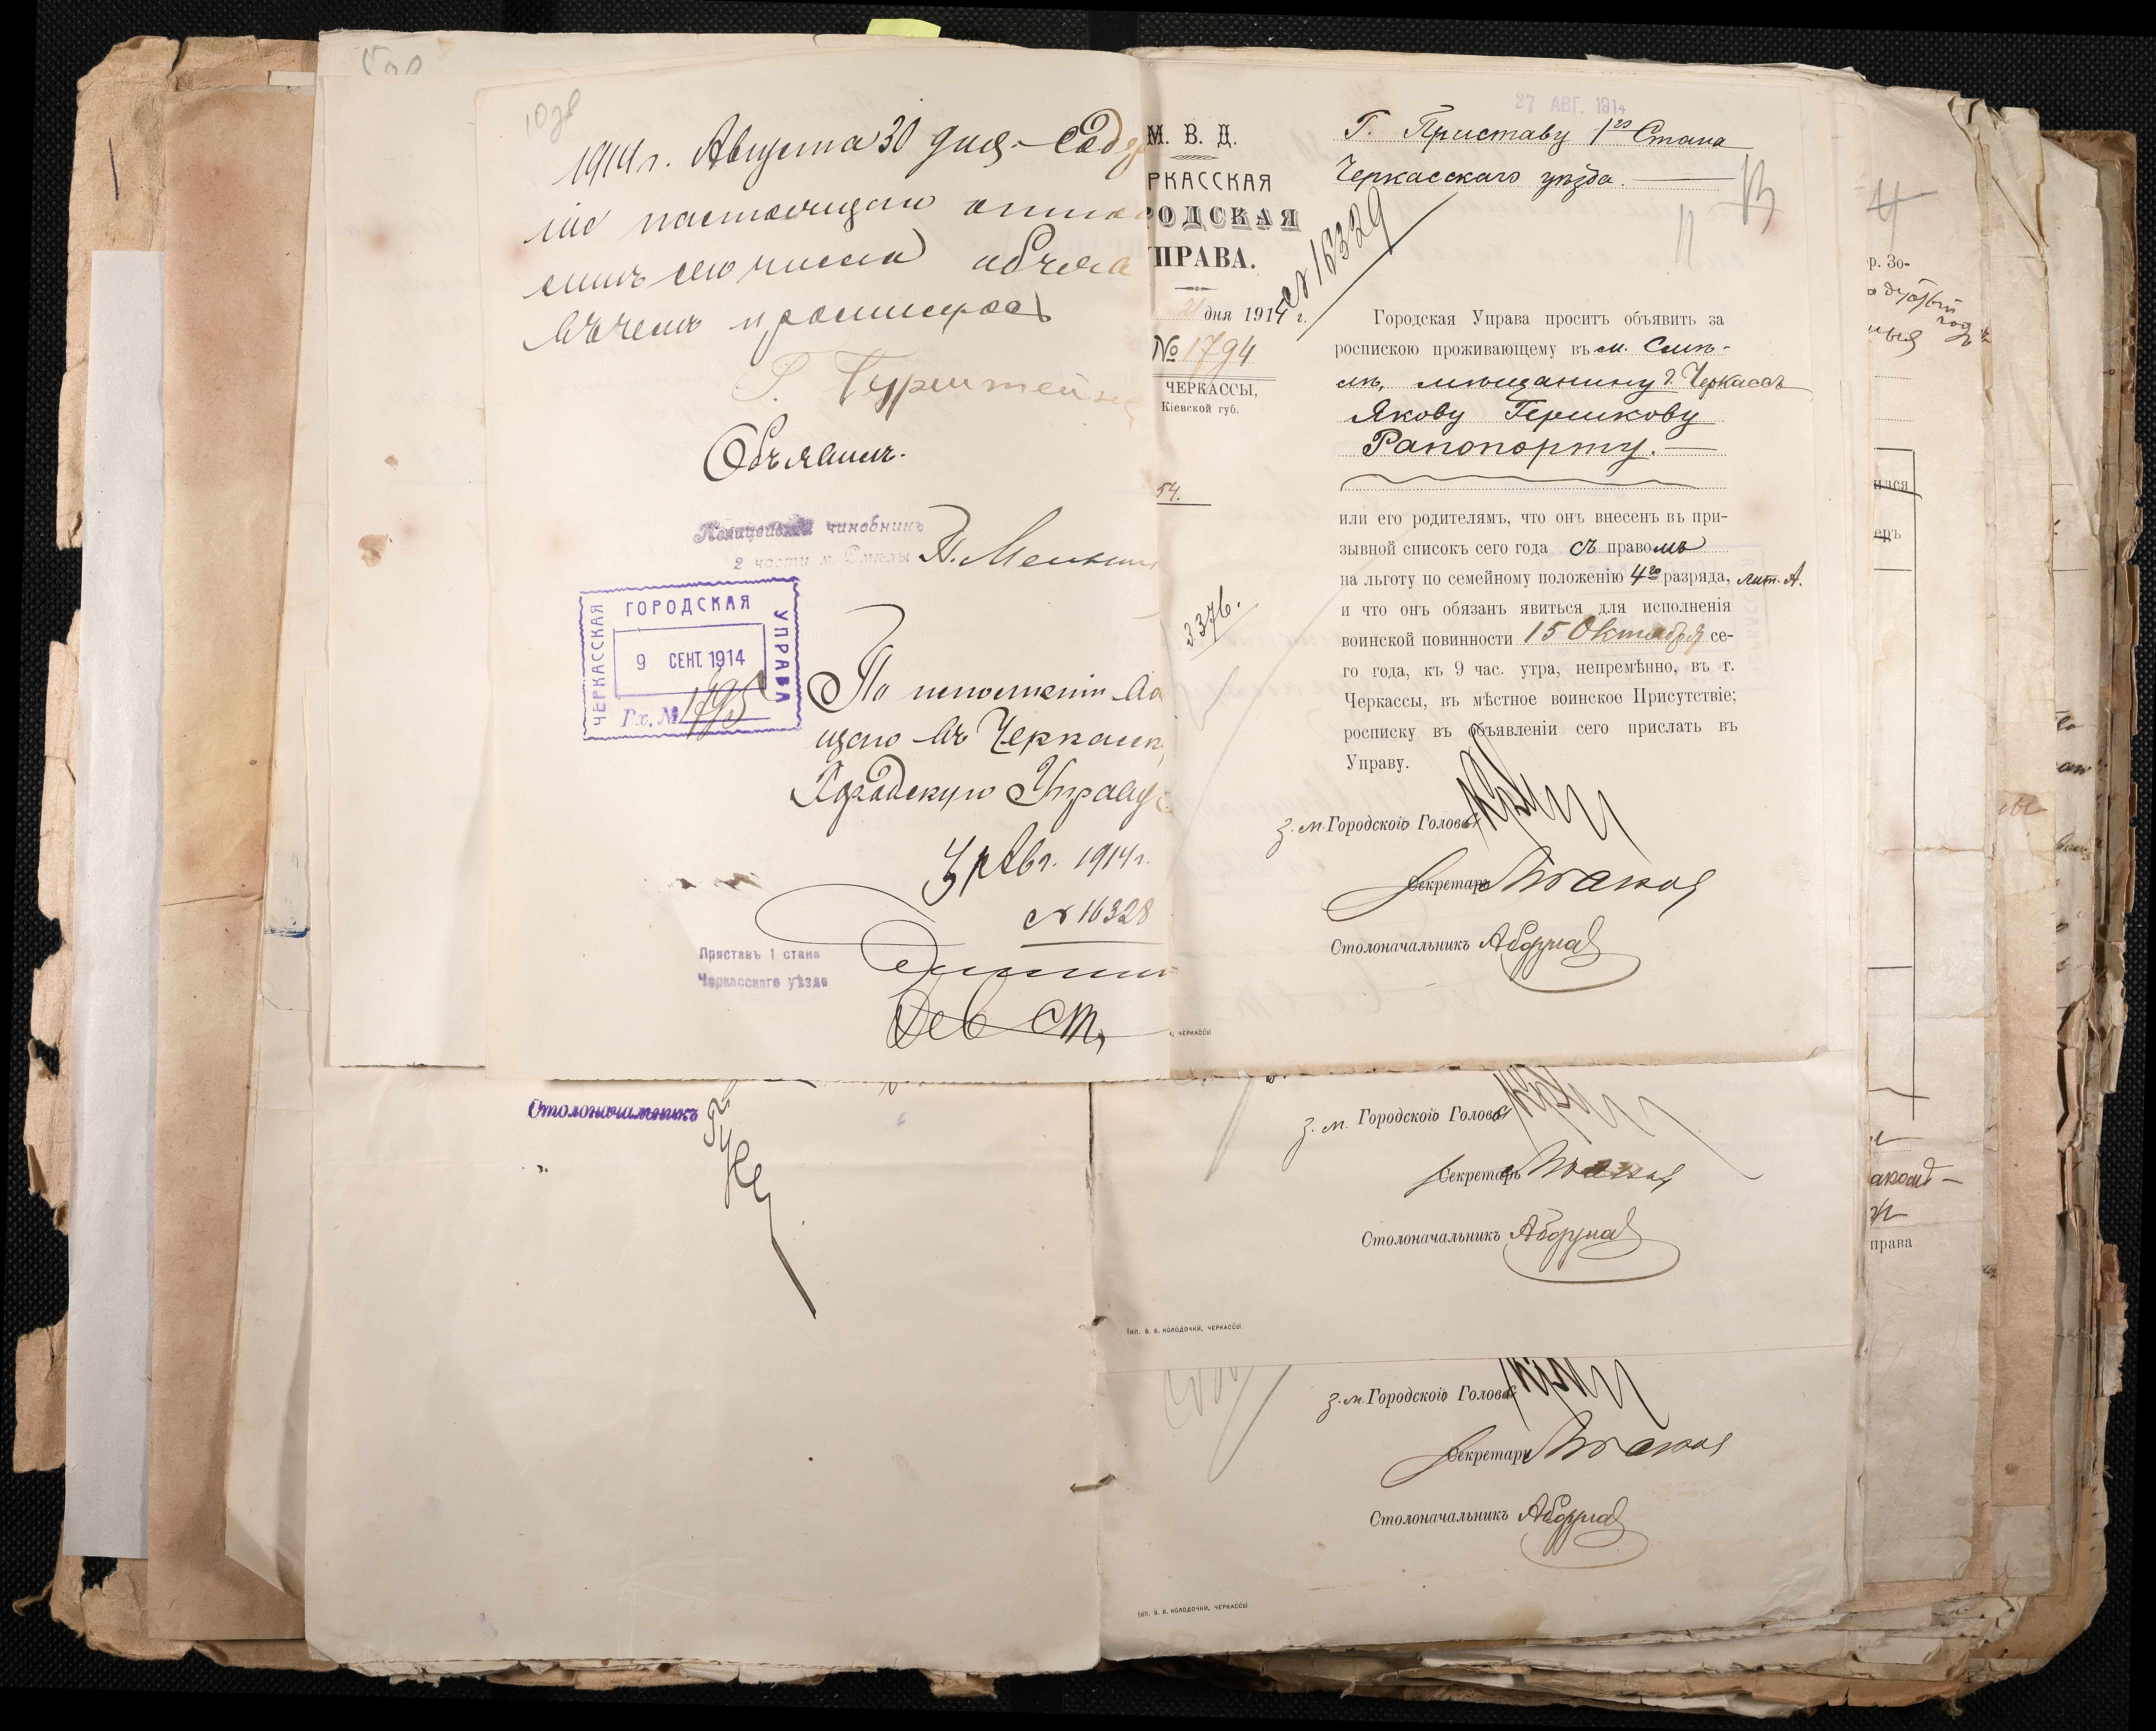 10 зв
1914 г. Августа 30 дня. Содер
ніе настоящаго отно
сего числа объяв
въ чемъ и росписуюсь
Г. Гурштейн
Объявилъ.
Полицейскій чиновникъ
2 части м. Смѣлы
ЧЕРКАССКАЯ ГОРОДСКАЯ УПРАВА
9 СЕНТ. 1914
Вх. № 1795
По исполненіи
щаю въ Черкасск
Городскую Управу
Авг. 1914 г.
№ 16328
Приставъ 1 стана
Черкасскаго уѣзда
Столоначальникъ
27 АВГ. 1914
М. В. Д.
РКАССКАЯ
РОДСКАЯ
ПРАВА.
дня 1914 г.
№ 1794
ЧЕРКАССЫ,
Кіевской губ.
54.
3376.
№ 16329
Г. Приставу 1го Стана
Черкасскаго уѣзда.
11
13
Городская Управа проситъ объявить за
роспискою проживающему въ м. Смѣ-
лѣ, мѣщанину г. Черкассъ
Якову Гершкову
Рапопорту.
или его родителямъ, что онъ внесенъ въ при-
зывной списокъ сего года съ правомъ
на льготу по семейному положенію 4го разряда, лит. А.
и что онъ обязанъ явиться для исполненія
воинской повинности 15 Октября се-
го года, къ 9 час. утра, непремѣнно, въ г.
Черкассы, въ мѣстное воинское Присутствіе;
росписку въ объявленіи сего прислать въ
Управу.
З. м. Городского Головы
Секретарь
Столоначальникъ
ЧЕРКАССЫ
З. м. Городского Головы
Секретарь
Столоначальникъ
ТИП. В. В. КОЛОДОЧКИ, ЧЕРКАССЫ
З. м. Городского Головы
Секретарь
Столоначальникъ
ТИП. В. В. КОЛОДОЧКИ, ЧЕРКАССЫ
р. Зо-
ился
еръ
права